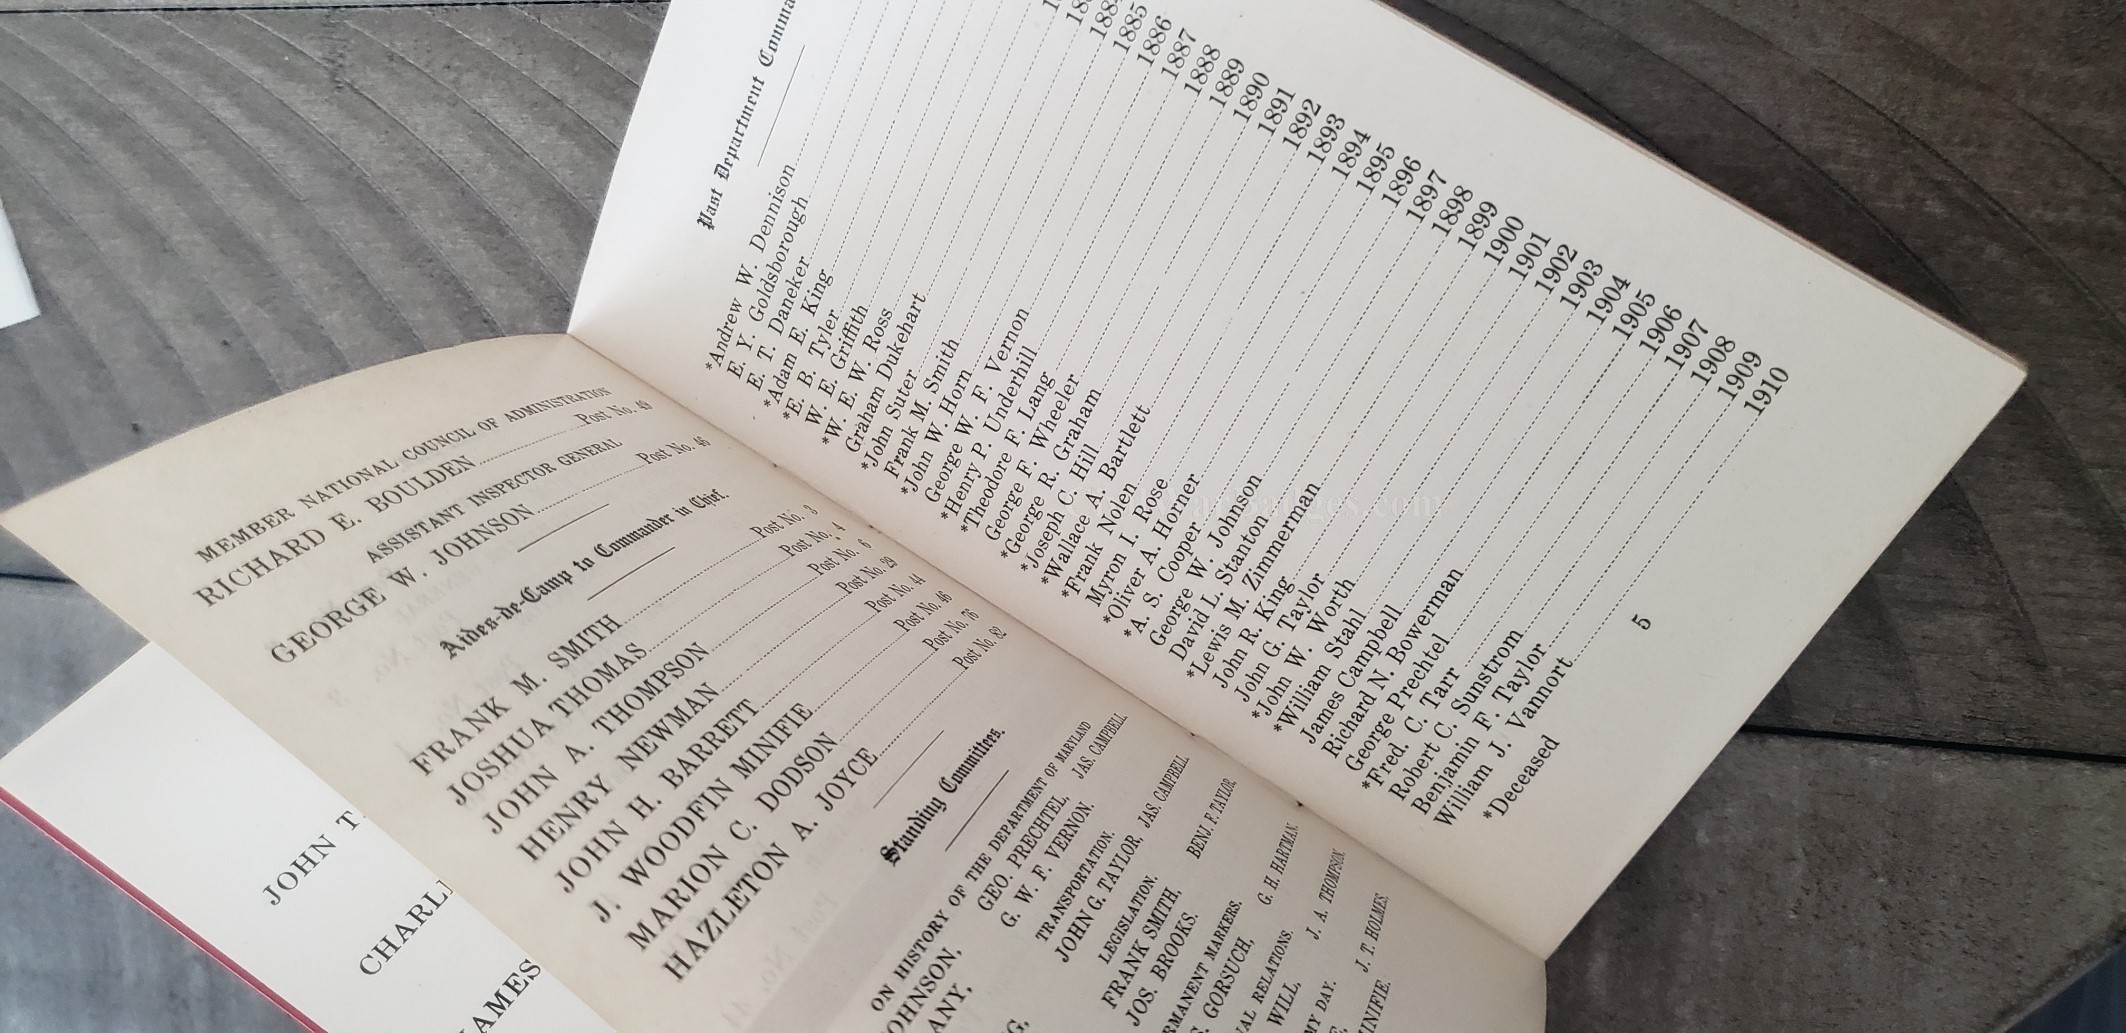 MEMBER NATIONAL COUNCIL OF ADMINISTRATION
RICHARD E. BOULDEN Post No. 49
ASSISTANT INSPECTOR GENERAL
GEORGE W. JOHNSON Post No. 46
Aides-de-Camp to Commander in Chief.
FRANK M. SMITH Post No. 3
JOSHUA THOMAS Post No. 4
JOHN A. THOMPSON Post No. 6
HENRY NEWMAN Post No. 29
JOHN H. BARRETT Post No. 44
J. WOODFIN MINIFIE Post No. 46
MARION C. DODSON Post No. 76
HAZLETON A. JOYCE Post No. 82
Standing Committees.
ON HISTORY OF THE DEPARTMENT OF MARYLAND
OHNSON, GEO. PRECHTEL, JAS. CAMPBELL,
ANY, G. W. F. VERNON.
TRANSPORTATION.
G. JOHN G. TAYLOR, JAS. CAMPBELL.
LEGISLATION.
FRANK SMITH, BENJ. F. TAYLOR.
JOS. BROOKS.
RMANENT MARKERS.
GORSUCH, G. H. HARTMAN.
AL RELATIONS.
WILL, J. A. THOMPSON.
MY DAY.
J. T. HOLMES.
INIFIE.
JOHN T
CHARL
JAMES
Past Department Comma
*Andrew W. Dennison
E. Y. Goldsborough
E. T. Daneker
*Adam E. King
*E. B. Tyler
W. E. Griffith
*W. E. W. Ross
Graham Dukehart
*John Suter
Frank M. Smith 188
*John W. Horn 1885
George W. F. Vernon 1886
*Henry P. Underhill 1887
*Theodore F. Lang 1888
George F. Wheeler 1889
*George R. Graham 1890
*Joseph C. Hill 1891
*Wallace A. Bartlett 1892
*Frank Nolen 1893
Myron I. Rose 1894
*Oliver A. Horner 1895
*A. S. Cooper 1896
George W. Johnson 1897
David L. Stanton 1898
*Lewis M. Zimmerman 1899
John R. King 1900
John G. Taylor 1901
*John W. Worth 1902
*William Stahl 1903
James Campbell 1904
Richard N. Bowerman 1905
George Prechtel 1906
*Fred. C. Tarr 1907
Robert C. Sunstrom 1908
Benjamin F. Taylor 1909
William J. Vannort 1910
*Deceased
5